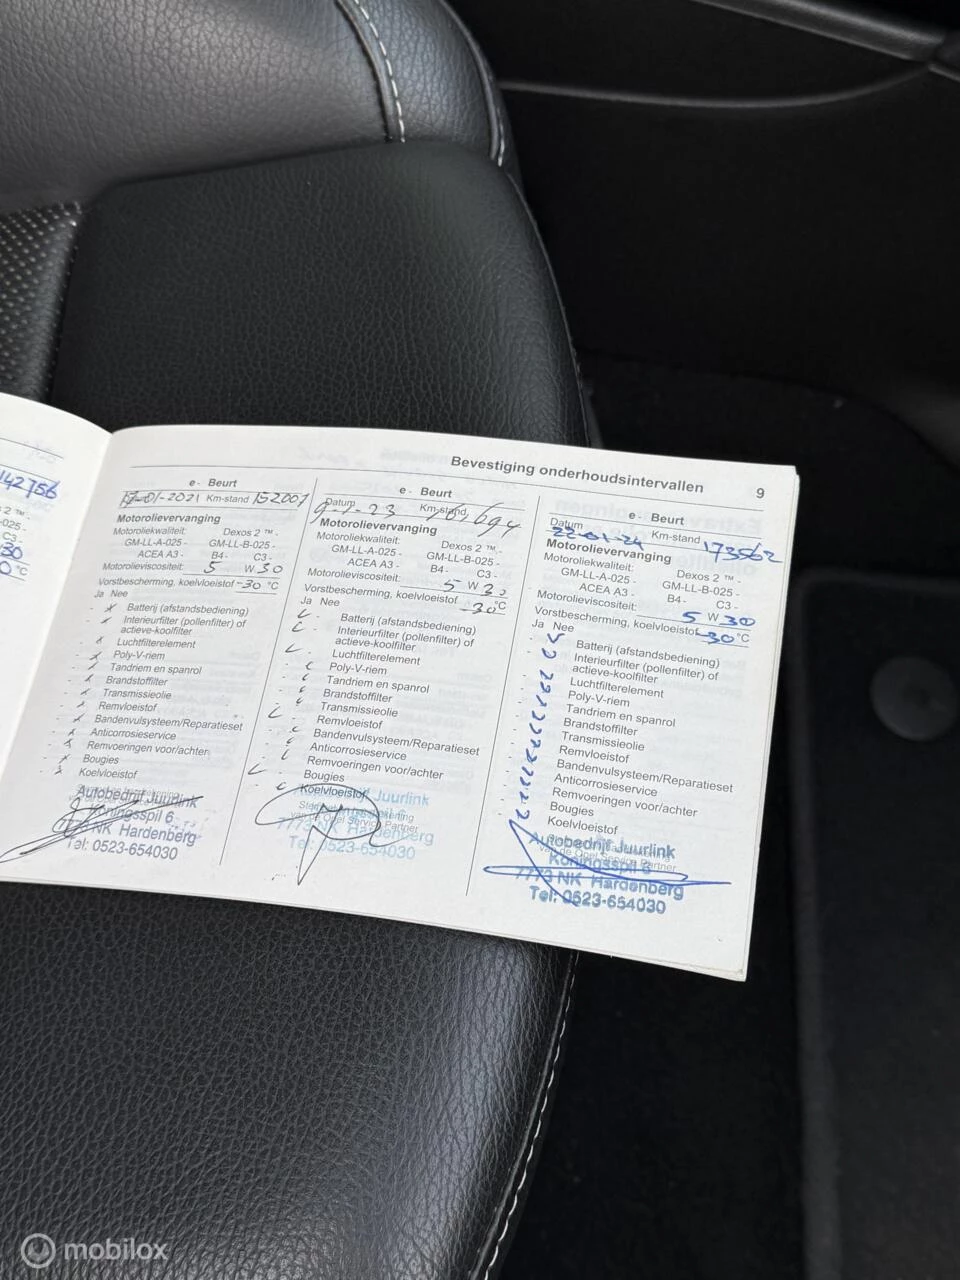 142756
2 ™ -
-025 -
C3 -
30
0 °C
Bevestiging onderhoudsintervallen 9
e - Beurt
-01-2021 Km-stand 152001
Motorolievervanging
Motoroliekwaliteit: Dexos 2 ™ -
GM-LL-A-025 - GM-LL-B-025 -
ACEA A3 - B4 - C3 -
Motorolieviscositeit: 5 W 30
Vorstbescherming, koelvloeistof -30 °C
Ja Nee
Batterij (afstandsbediening)
Interieurfilter (pollenfilter) of
actieve-koolfilter
Luchtfilterelement
Poly-V-riem
Tandriem en spanrol
Brandstoffilter
Transmissieolie
Remvloeistof
Bandenvulsysteem/Reparatieset
Anticorrosieservice
Remvoeringen voor/achter
Bougies
Koelvloeistof
Autobedrijf Juurlink
Koningsspil 6
7773 NK Hardenberg
Tel: 0523-654030
e - Beurt
Datum Km-stand
Motorolievervanging
Motoroliekwaliteit: Dexos 2 ™ -
GM-LL-A-025 - GM-LL-B-025 -
ACEA A3 - B4 - C3 -
Motorolieviscositeit: 5 W 30
Vorstbescherming, koelvloeistof -30 °C
Ja Nee
Batterij (afstandsbediening)
Interieurfilter (pollenfilter) of
actieve-koolfilter
Luchtfilterelement
Poly-V-riem
Tandriem en spanrol
Brandstoffilter
Transmissieolie
Remvloeistof
Bandenvulsysteem/Reparatieset
Anticorrosieservice
Remvoeringen voor/achter
Bougies
Koelvloeistof
Juurlink
van de Opel Service Partner
7773 NK Hardenberg
Tel: 0523-654030
e - Beurt
Datum 22-01-24 Km-stand 173562
Motorolievervanging
Motoroliekwaliteit: Dexos 2 ™ -
GM-LL-A-025 - GM-LL-B-025 -
ACEA A3 - B4 - C3 -
Motorolieviscositeit: 5 W 30
Vorstbescherming, koelvloeistof -30 °C
Ja Nee
Batterij (afstandsbediening)
Interieurfilter (pollenfilter) of
actieve-koolfilter
Luchtfilterelement
Poly-V-riem
Tandriem en spanrol
Brandstoffilter
Transmissieolie
Remvloeistof
Bandenvulsysteem/Reparatieset
Anticorrosieservice
Remvoeringen voor/achter
Bougies
Koelvloeistof
Autobedrijf Juurlink
van de Opel Service Partner
Koningsspil 6
7773 NK Hardenberg
Tel: 0523-654030
mobilox